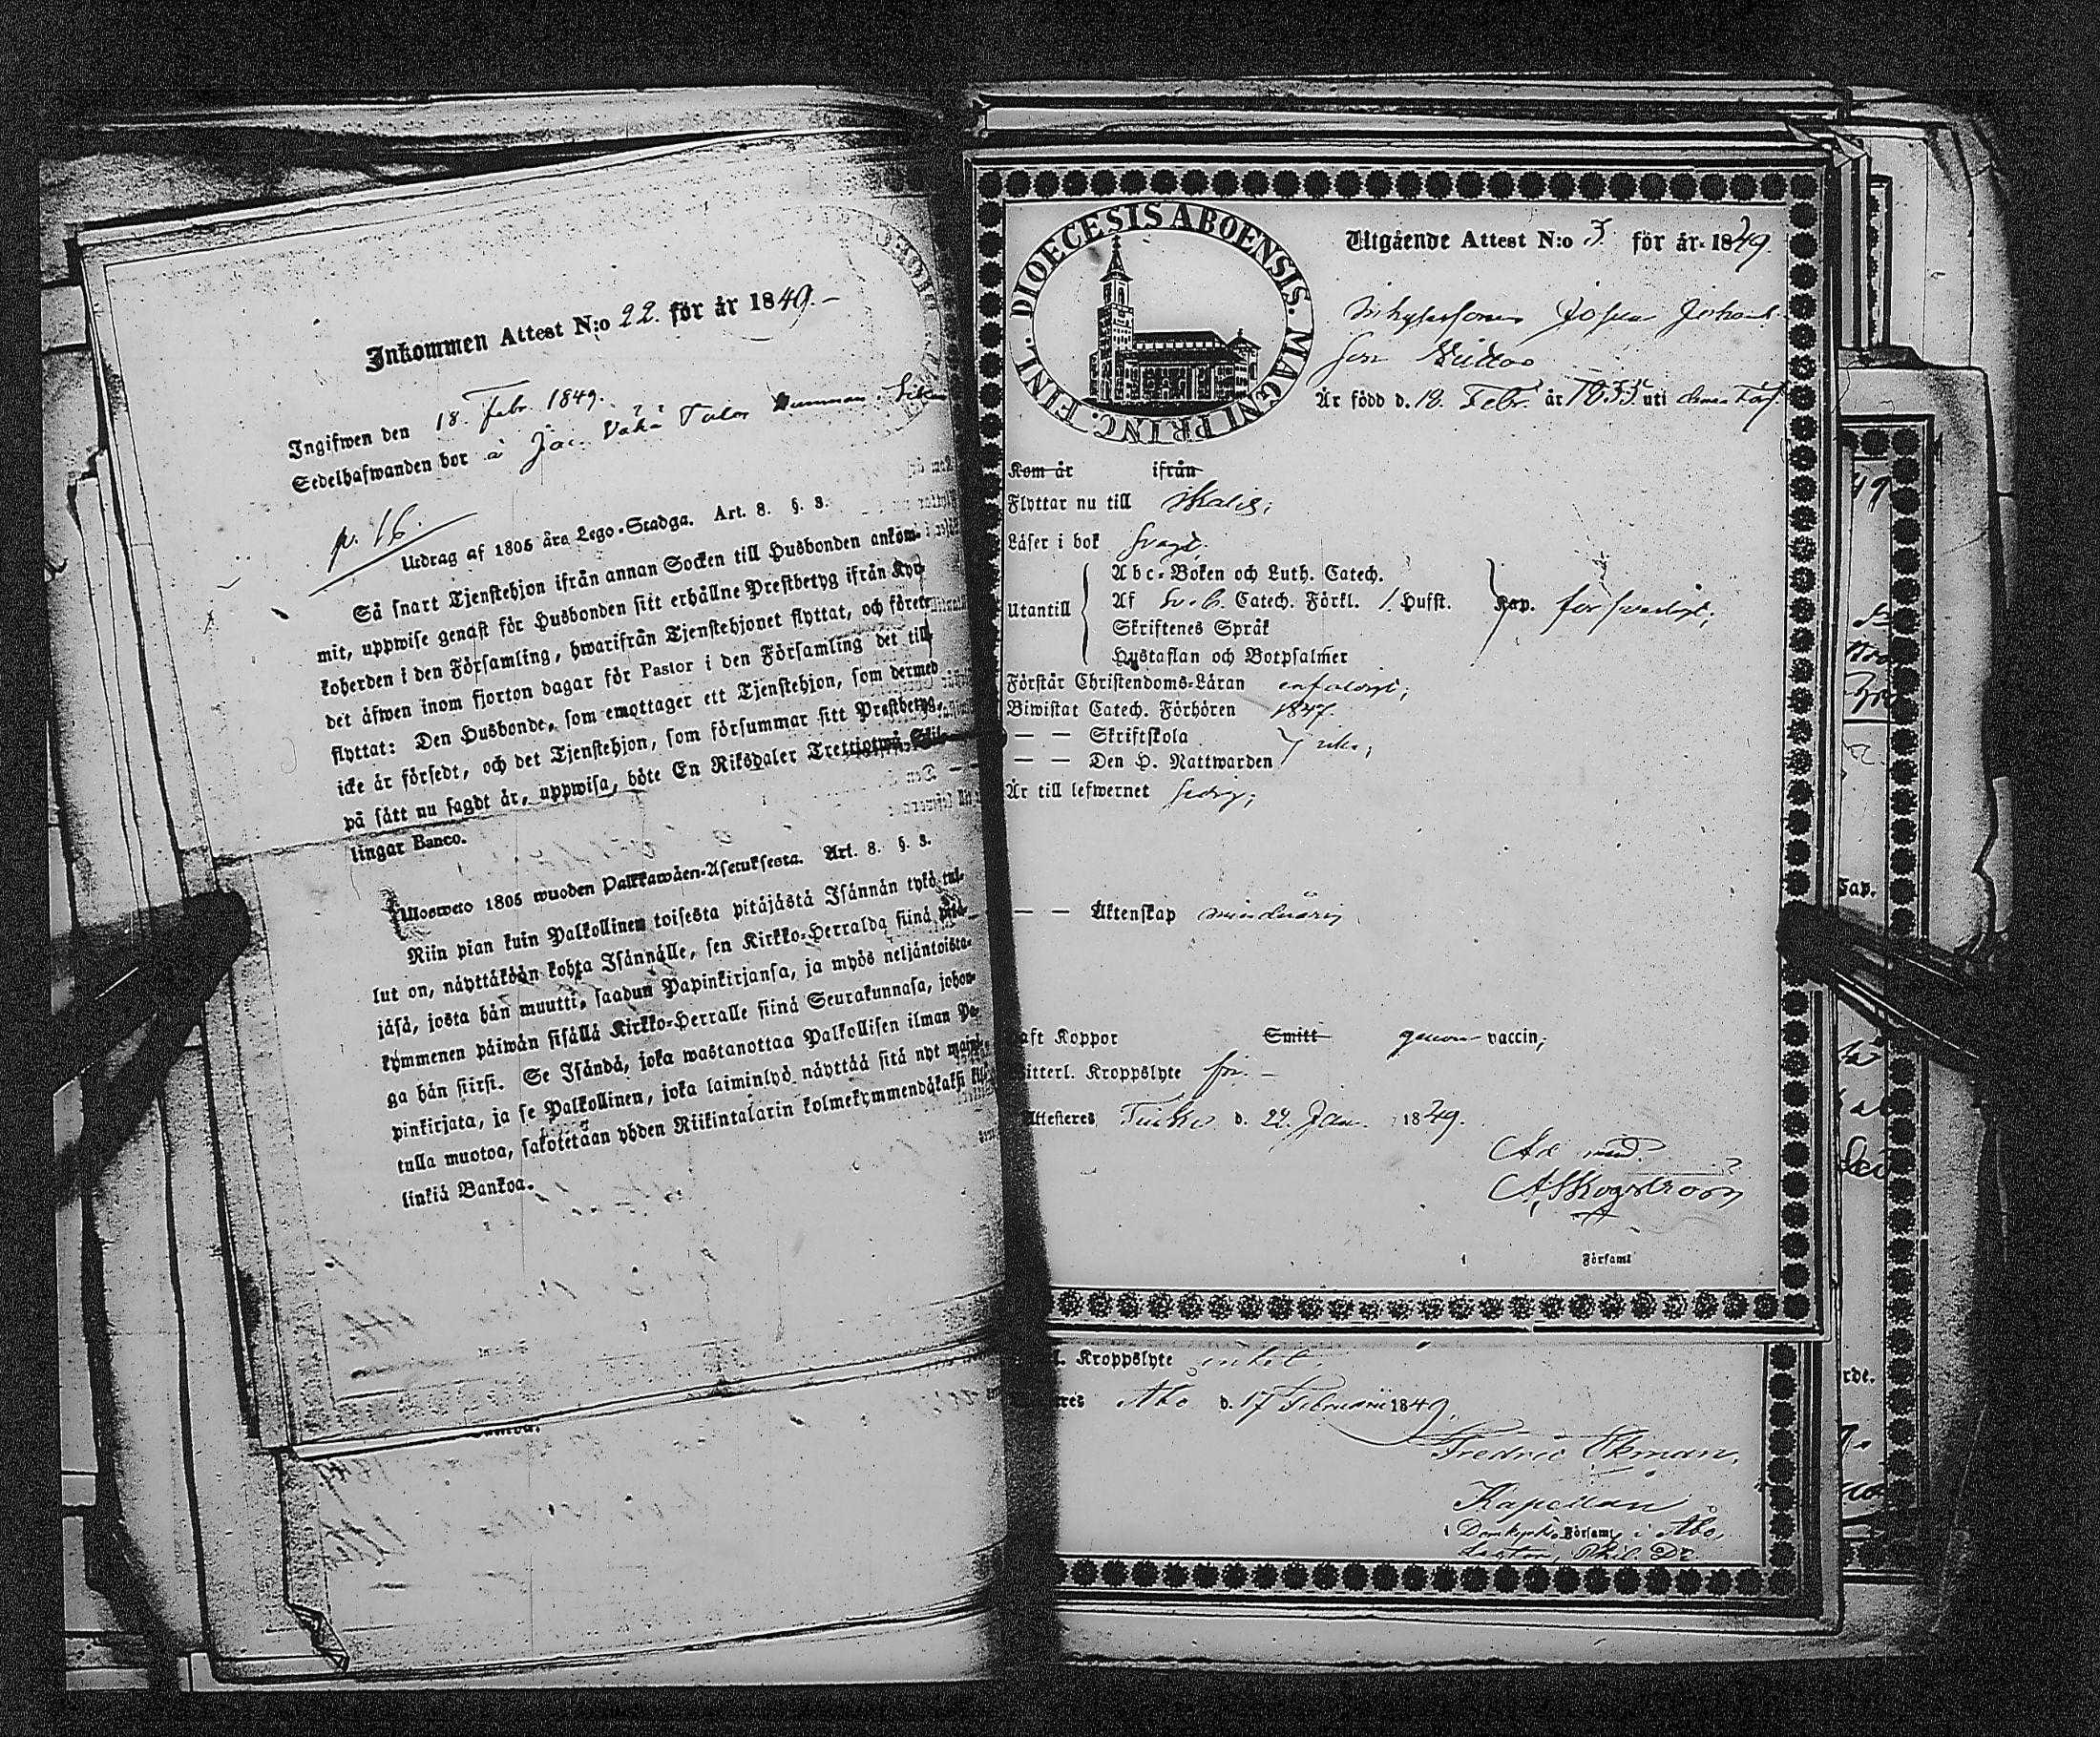 Inkommen Attest N:o 22. för år 1849.
Ingifwen den 18. Febr. 1849.
Sedelhafwanden bor à Jac. Vähä Talor
p. 16.
Utdrag af 1805 års Lego-Stadga. Art. 8. §. 3.
Så snart Tjenstehjon ifrån annan Socken till Husbonden ankom-
mit, uppwise genast för Husbonden sitt erhållne Prestbetyg ifrån Kyr-
koherden i den Församling, hwarifrån Tjenstehjonet flyttat, och förete
det äfwen inom fjorton dagar för Pastor i den Församling det till
flyttat: Den Husbonde, som emottager ett Tjenstehjon, som dermed
icke är försedt, och det Tjenstehjon, som försummar sitt Prestbetyg,
på sätt nu sagdt är, uppwisa, böte En Riksdaler Trettiotwå Skil-
lingar Banco.
Ulosweto 1805 wuoden Palkkawäen-Asetuksesta. Art. 8. §. 3.
Niin pian kuin Palkollinen toisesta pitäjästä Isännän tykö tul-
lut on, näyttäköön kohta Isännälle, sen Kirkko-Herralda siinä pitä-
jäsä, josta hän muutti, saadun Papinkirjansa, ja myös neljäntoista-
kymmenen päiwän sisällä Kirkko-Herralle siinä Seurakunnasa, johon-
ga hän siirsi. Se Isändä, joka wastanottaa Palkollisen ilman Pa-
pinkirjata, ja se Palkollinen, joka laiminlyö näyttää sitä nyt maini-
tulla muotoa, sakotetaan yhden Riikintalarin kolmekymmendäkaksi kil-
linkiä Bankoa.
DIOECESIS ABOENSIS. MAGNI PRINC. FINL.
Utgående Attest N:o 3. för år 1849.
Josua Johans-
son
Är född d. 18. Febr. år 1833. uti denna
Kom år ifrån
Flyttar nu till
Läser i bok svagt.
Abc-Boken och Luth. Catech.
Utantill Af Sv-b. Catech. Förkl. 1. Hufst. Kap. försvarligt;
Skriftenes Språk
Hustaflan och Botpsalmer
Förstår Christendoms-Läran enfaldigt;
Biwistat Catech. Förhören 1847.
— — Skriftskola
— — Den H. Nattwarden
Är till lefwernet sedig;
— — Äktenskap minderårig
aft Koppor Smitt genom vaccin;
itterl. Kroppslyte fri. —
Attesteres d. 24. Jan. 1849.
A Skogström
i Församl
l. Kroppslyte intet.
res Åbo d. 17 Februarii 1849.
Fredric Ekman,
Kapellan
i Domkyrko Församl i Åbo,
Phil. Dr.